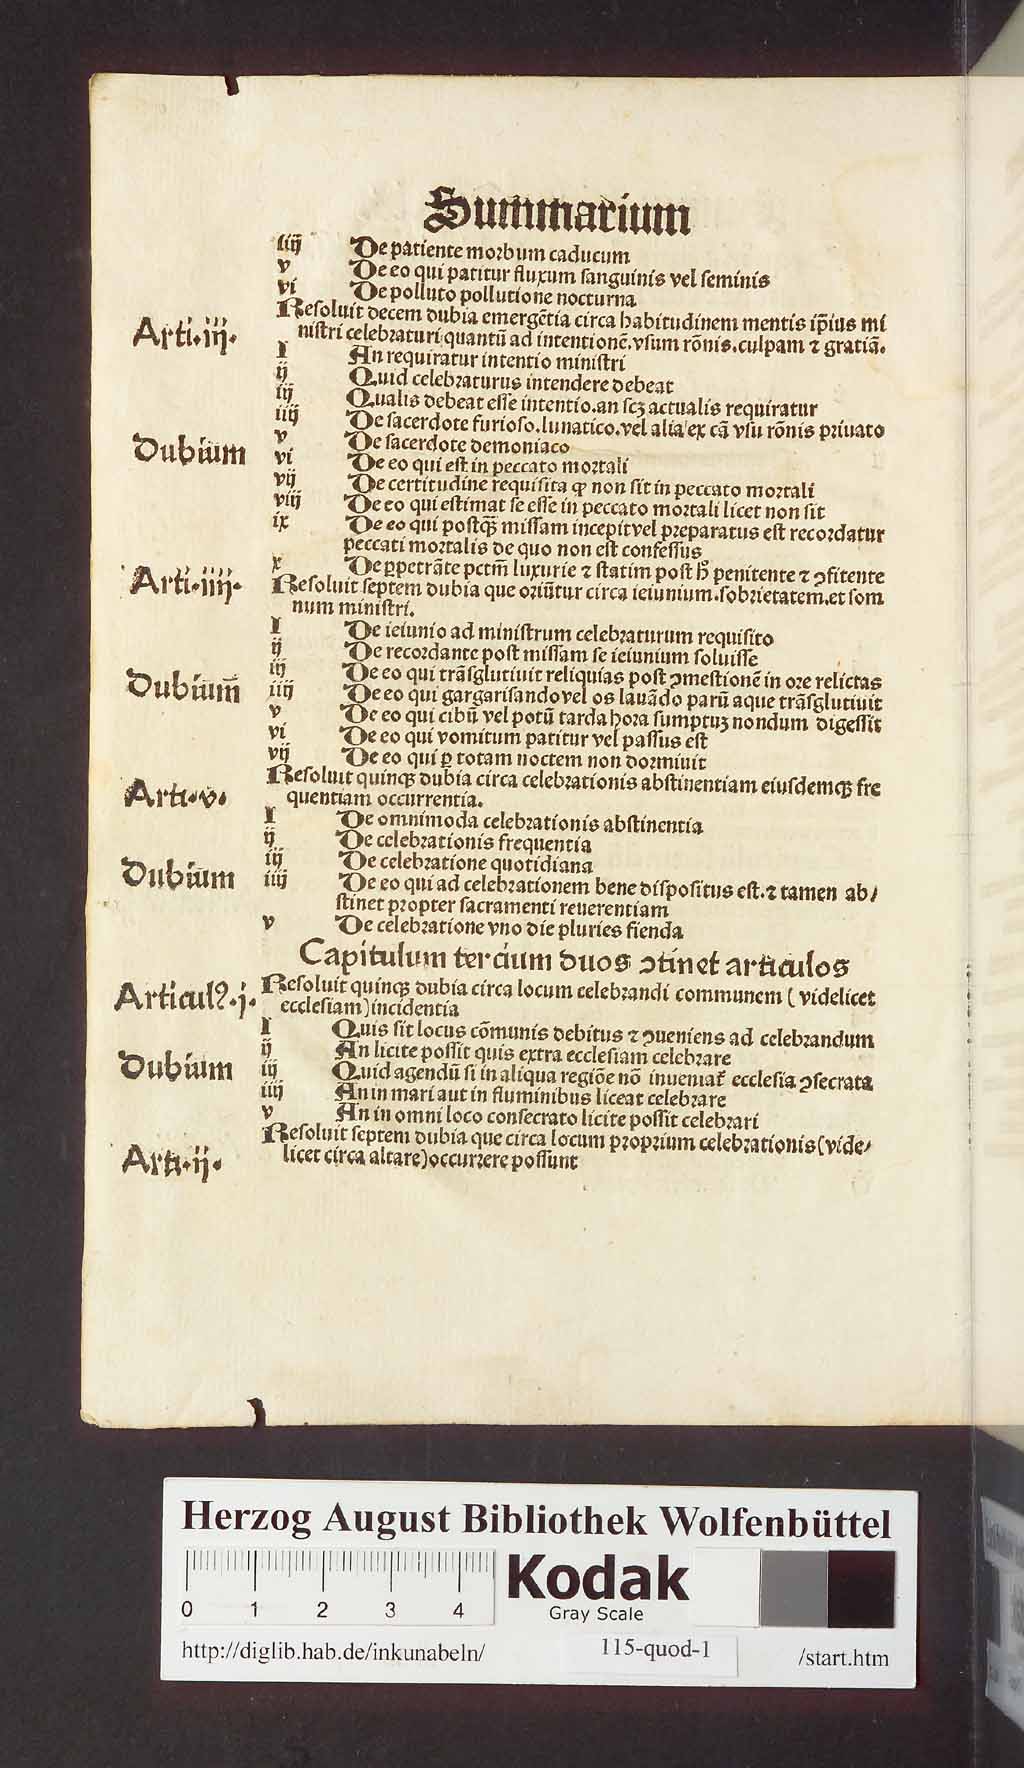 Summarium
iiij De patiente morbum caducum
v De eo qui patitur fluxum sanguinis vel seminis
vi De polluto pollutione nocturna
Arti·iij· Resoluit decem dubia emergētia circa habitudinem mentis ip̄ius mi
nistri celebraturi quantū ad intentionē.vsum rōnis.culpam ⁊ gratiā.
I An requiratur intentio ministri
ij Quid celebraturus intendere debeat
iij Qualis debeat esse intentio.an scꝫ actualis requiratur
iiij De sacerdote furioso.lunatico.vel alia ex cā vsu rōnis priuato
v De sacerdote demoniaco
Dubium vi De eo qui est in peccato mortali
vij De certitudine requisita ꝙ non sit in peccato mortali
viij De eo qui estimat se esse in peccato mortali licet non sit
ix De eo qui postqᷓ missam incepit vel preparatus est recordatur
peccati mortalis de quo non est confessus
x De ꝑpetrāte pctm̄ luxurie ⁊ statim post h̄ penitente ⁊ ꝯfitente
Arti·iiij· Resoluit septem dubia que oriūtur circa ieiunium.sobrietatem.et som
num ministri.
I De ieiunio ad ministrum celebraturum requisito
ij De recordante post missam se ieiunium soluisse
iij De eo qui trāsglutiuit reliquias post ꝯmestionē in ore relictas
Dubium̄ iiij De eo qui gargarisando vel os lauādo parū aque trāsglutiuit
v De eo qui cibū vel potū tarda hora sumptuꝫ nondum digessit
vi De eo qui vomitum patitur vel passus est
vij De eo qui ꝑ totam noctem non dormiuit
Arti·v· Resoluit quinqꝫ dubia circa celebrationis abstinentiam eiusdemqꝫ fre
quentiam occurrentia.
I De omnimoda celebrationis abstinentia
ij De celebrationis frequentia
iij De celebratione quotidiana
Dubium iiij De eo qui ad celebrationem bene dispositus est.⁊ tamen ab/
stinet propter sacramenti reuerentiam
v De celebratione vno die pluries fienda
Capitulum tercium duos ꝯtinet articulos
Articulꝰ·j· Resoluit quinqꝫ dubia circa locum celebrandi communem ( videlicet
ecclesiam) incidentia
I Quis sit locus cōmunis debitus ⁊ ꝯueniens ad celebrandum
ij An licite possit quis extra ecclesiam celebrare
Dubium iij Quid agendū si in aliqua regiōe nō inueniat᷑ ecclesia ꝯsecrata
iiij An in mari aut in fluminibus liceat celebrare
v An in omni loco consecrato licite possit celebrari
Arti·ij· Resoluit septem dubia que circa locum proprium celebrationis (vide/
licet circa altare) occurrere possunt
Herzog August Bibliothek Wolfenbüttel
0 1 2 3 4
Kodak
Gray Scale
http://diglib.hab.de/inkunabeln/ 115-quod-1 /start.htm